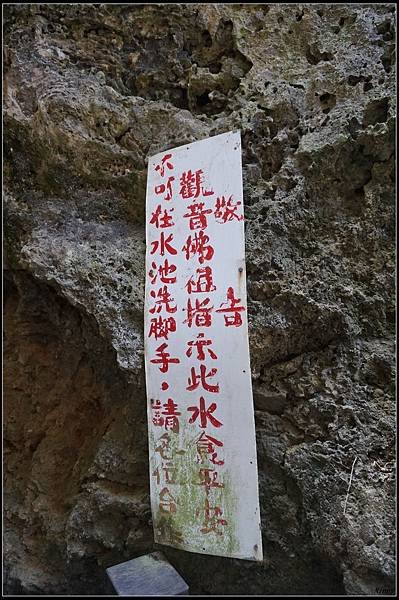 敬告
觀音佛祖指示此水食平安
不可在水池洗腳手，請各位台